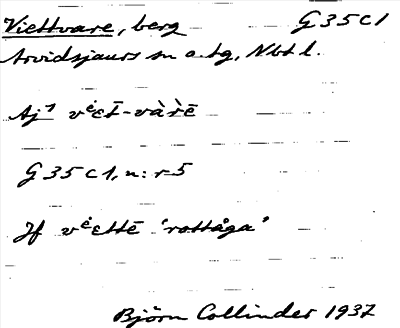 Viettvare, berg G 35 C 1
Arvidsjaurs sn o. tg, Nbt l.
Aj⁷ vėεt̄-vàr̀ē
G 35 C 1, n: r 5
Jf vėεttē 'rottåga'
Björn Collinder 1937